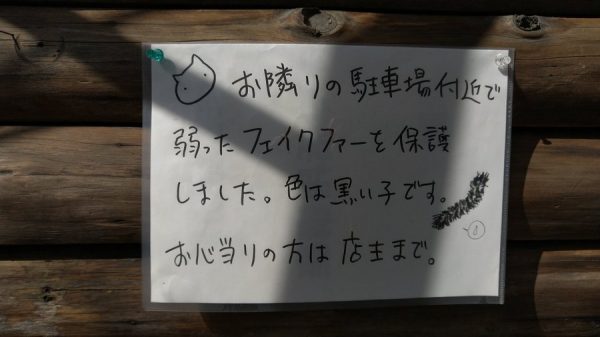 お隣りの駐車場付近で
弱ったフェイクファーを保護
しました。色は黒い子です。
お心当りの方は店主まで。